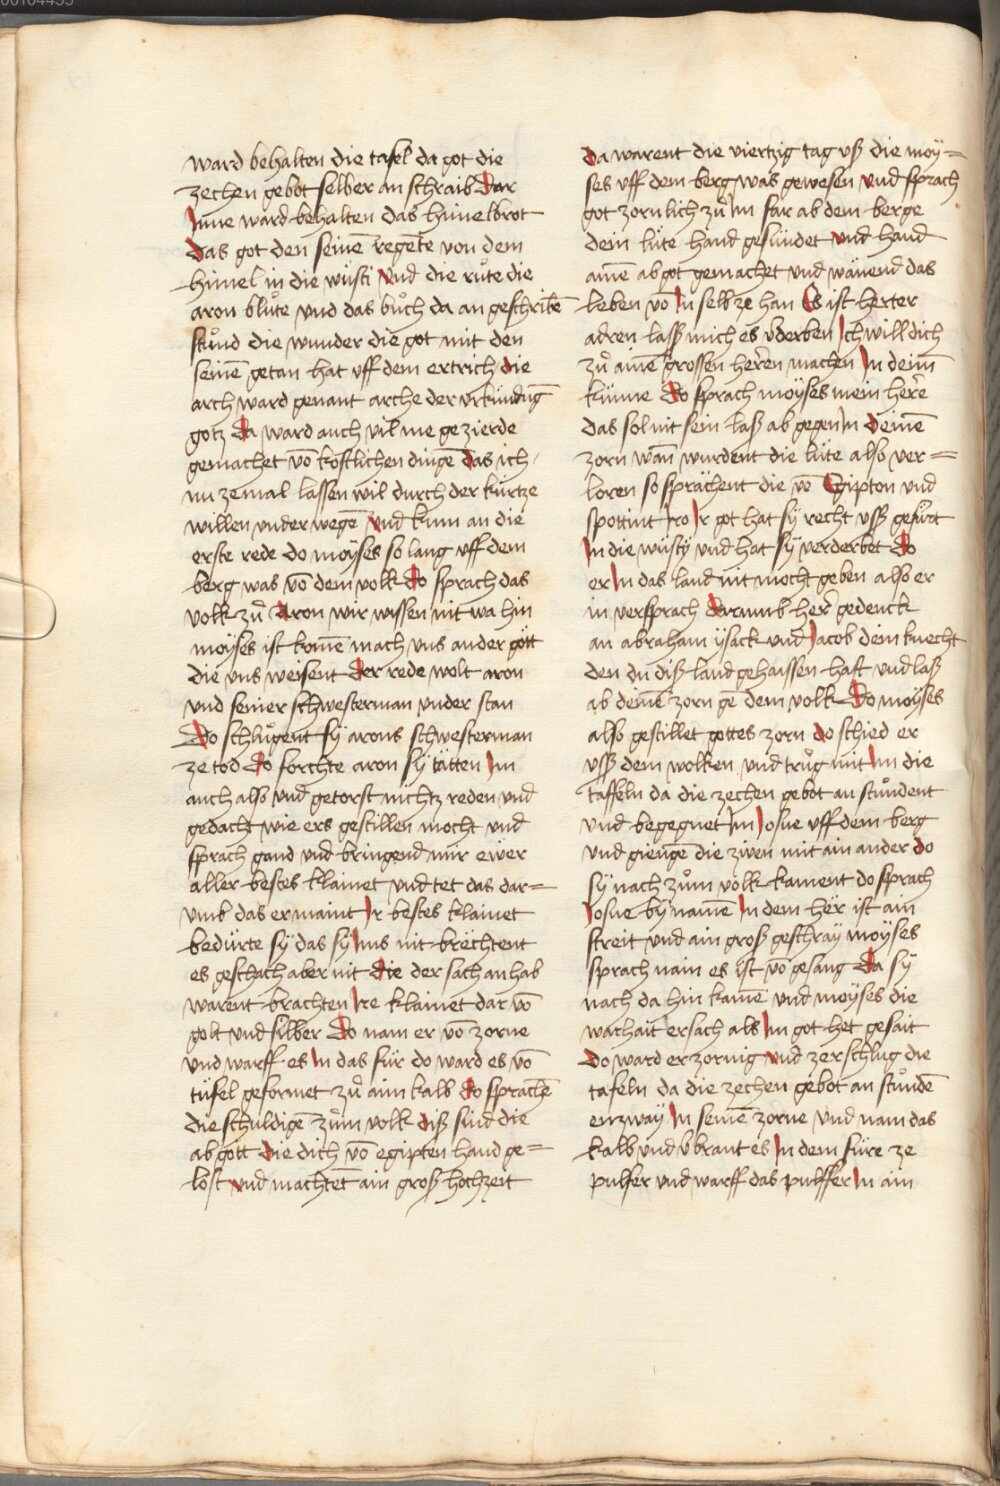 ward behalten die tafel da got die
zechen gebot selber an schraib Dar
Inne ward behalten das himelbrot
Das got den seinē regēte von dem
himel in die wüsti Vnd die růte die
aron blůte vnd das bůch da an geschribē
stůnd die wunder die got mit den
seinē getan hat vff dem ertrich die
arch ward genant arche der vrkündūg
gotz Da ward auch vil me gezierde
gemachet vō kostlichen dingē Das ich
nu zemal lassen wil durch der kürtze
willen vnder wegē Vnd kum an die
erste rede do moyses so lang vff dem
berg was vō dem volk Do sprach das
volk zů Aron wir wissen nit wa hin
moyses ist komē mach vns ander gött
die vns weisent Der rede wolt aron
vnd seiner schwesterman vnder stan
Do schlůgent sÿ arons schwesterman
ze tod Do forchte aron sÿ tätten Im
auch also vnd getorst nichtz reden vnd
gedacht wie ers gestillen mocht vnd
sprach gand vnd bringend mir ewer
aller bestes klainet vnd tet das dar=
vmb das er maint Ir bestes klainet
bedürte sÿ das sÿ Ims nit brechtent
es geschach aber nit Die der sach an hab
warent brachten Ire klainet dar vō
golt vnd silber Do nam er vō zorne
vnd warff es In das für do ward es vō
tüfel geformet zů aim kalb do sprachē
die schuldigē zům volk diß sind die
ab gött die dich vō egipten hand ge=
löst Vnd machtēt ain groß hochzeit
Da warent die viertzig tag vß die moy=
ses vff dem berg was gewesen Vnd sprach
got zornlich zů Im far ab dem berge
dein lüte hand gesündet vnd hand
ainē abgot gemachet vnd wänend das
leben vō In selb ze han Es ist herter
adren lass mich es vderben Ich will dich
zů ainē grossen herēn machen In deim
künne Do sprach moyses mein herē
das sol nit sein laß ab gegen In Deinē
zorn wān wurdent die lüte also ver=
loren so sprächent die vō Egipten vnd
spottint Iro Ir got hat sÿ recht vß gefürt
In die wüsty vnd hat sÿ verderbet Do
er In das land nit mocht geben also er
in versprach Darumb her gedenck
an abraham ysack vnd Jacob dein knecht
den du diß land gehaissen hast vnd laß
ab deinē zorn gē dem volk Do moyses
also gestillet gottes zorn do schied er
vß dem wolken vnd trůg mit Im die
taffeln da die zechen gebot an stůndent
vnd begegnet Im Josue vff dem berg
vnd giengē die zwen mit ain ander do
sÿ nach zům volk kament do sprach
Josue bÿ namē In dem her ist ain
streit vnd ain groß geschraÿ moyses
sprach nain es ist vō gesang Da sÿ
nach da hin kamē vnd moyses die
warhait ersach als Im got het gesait
Do ward er zornig vnd zerschlug die
tafeln da die zechen gebot an stůndē
enzwaÿ In seinē zorne vnd nam das
kalb vnd vbrant es In dem füre ze
pulfer vnd warff das pulffer In ain